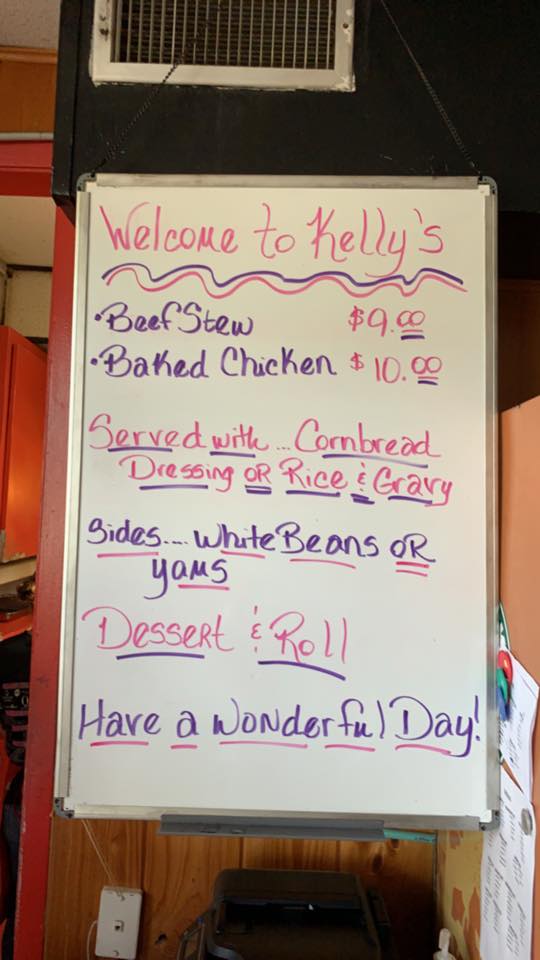 Welcome to Kelly's
•Beef Stew $9.00
•Baked Chicken $10.00
Served with... Cornbread
Dressing OR Rice & Gravy
Sides.... White Beans OR
yams
Dessert & Roll
Have a Wonderful Day!